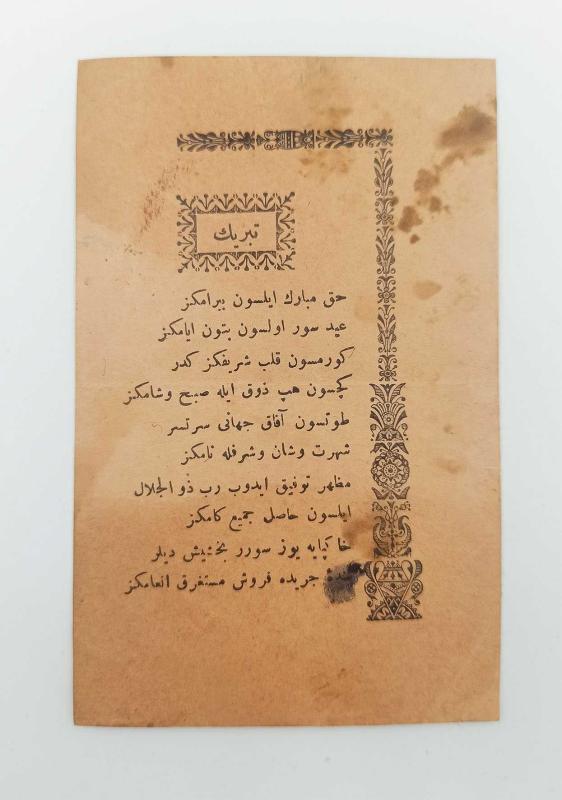 تبریك
حق مبارك ایلسون بیرامكز
عید سور اولسون بتون ایامكز
كورمسون قلب شریفكز كدر
كچسون هپ ذوق ایله صبح وشامكز
طوتسون آفاق جهانی سرتسر
شهرت وشان وشرفله نامكز
مظهر توفیق ایدوب رب ذو الجلال
ایلسون حاصل جمیع كامكز
خاكپایه یوز سورر بخشیش دیلر
جریده فروش مستغرق انعامكز